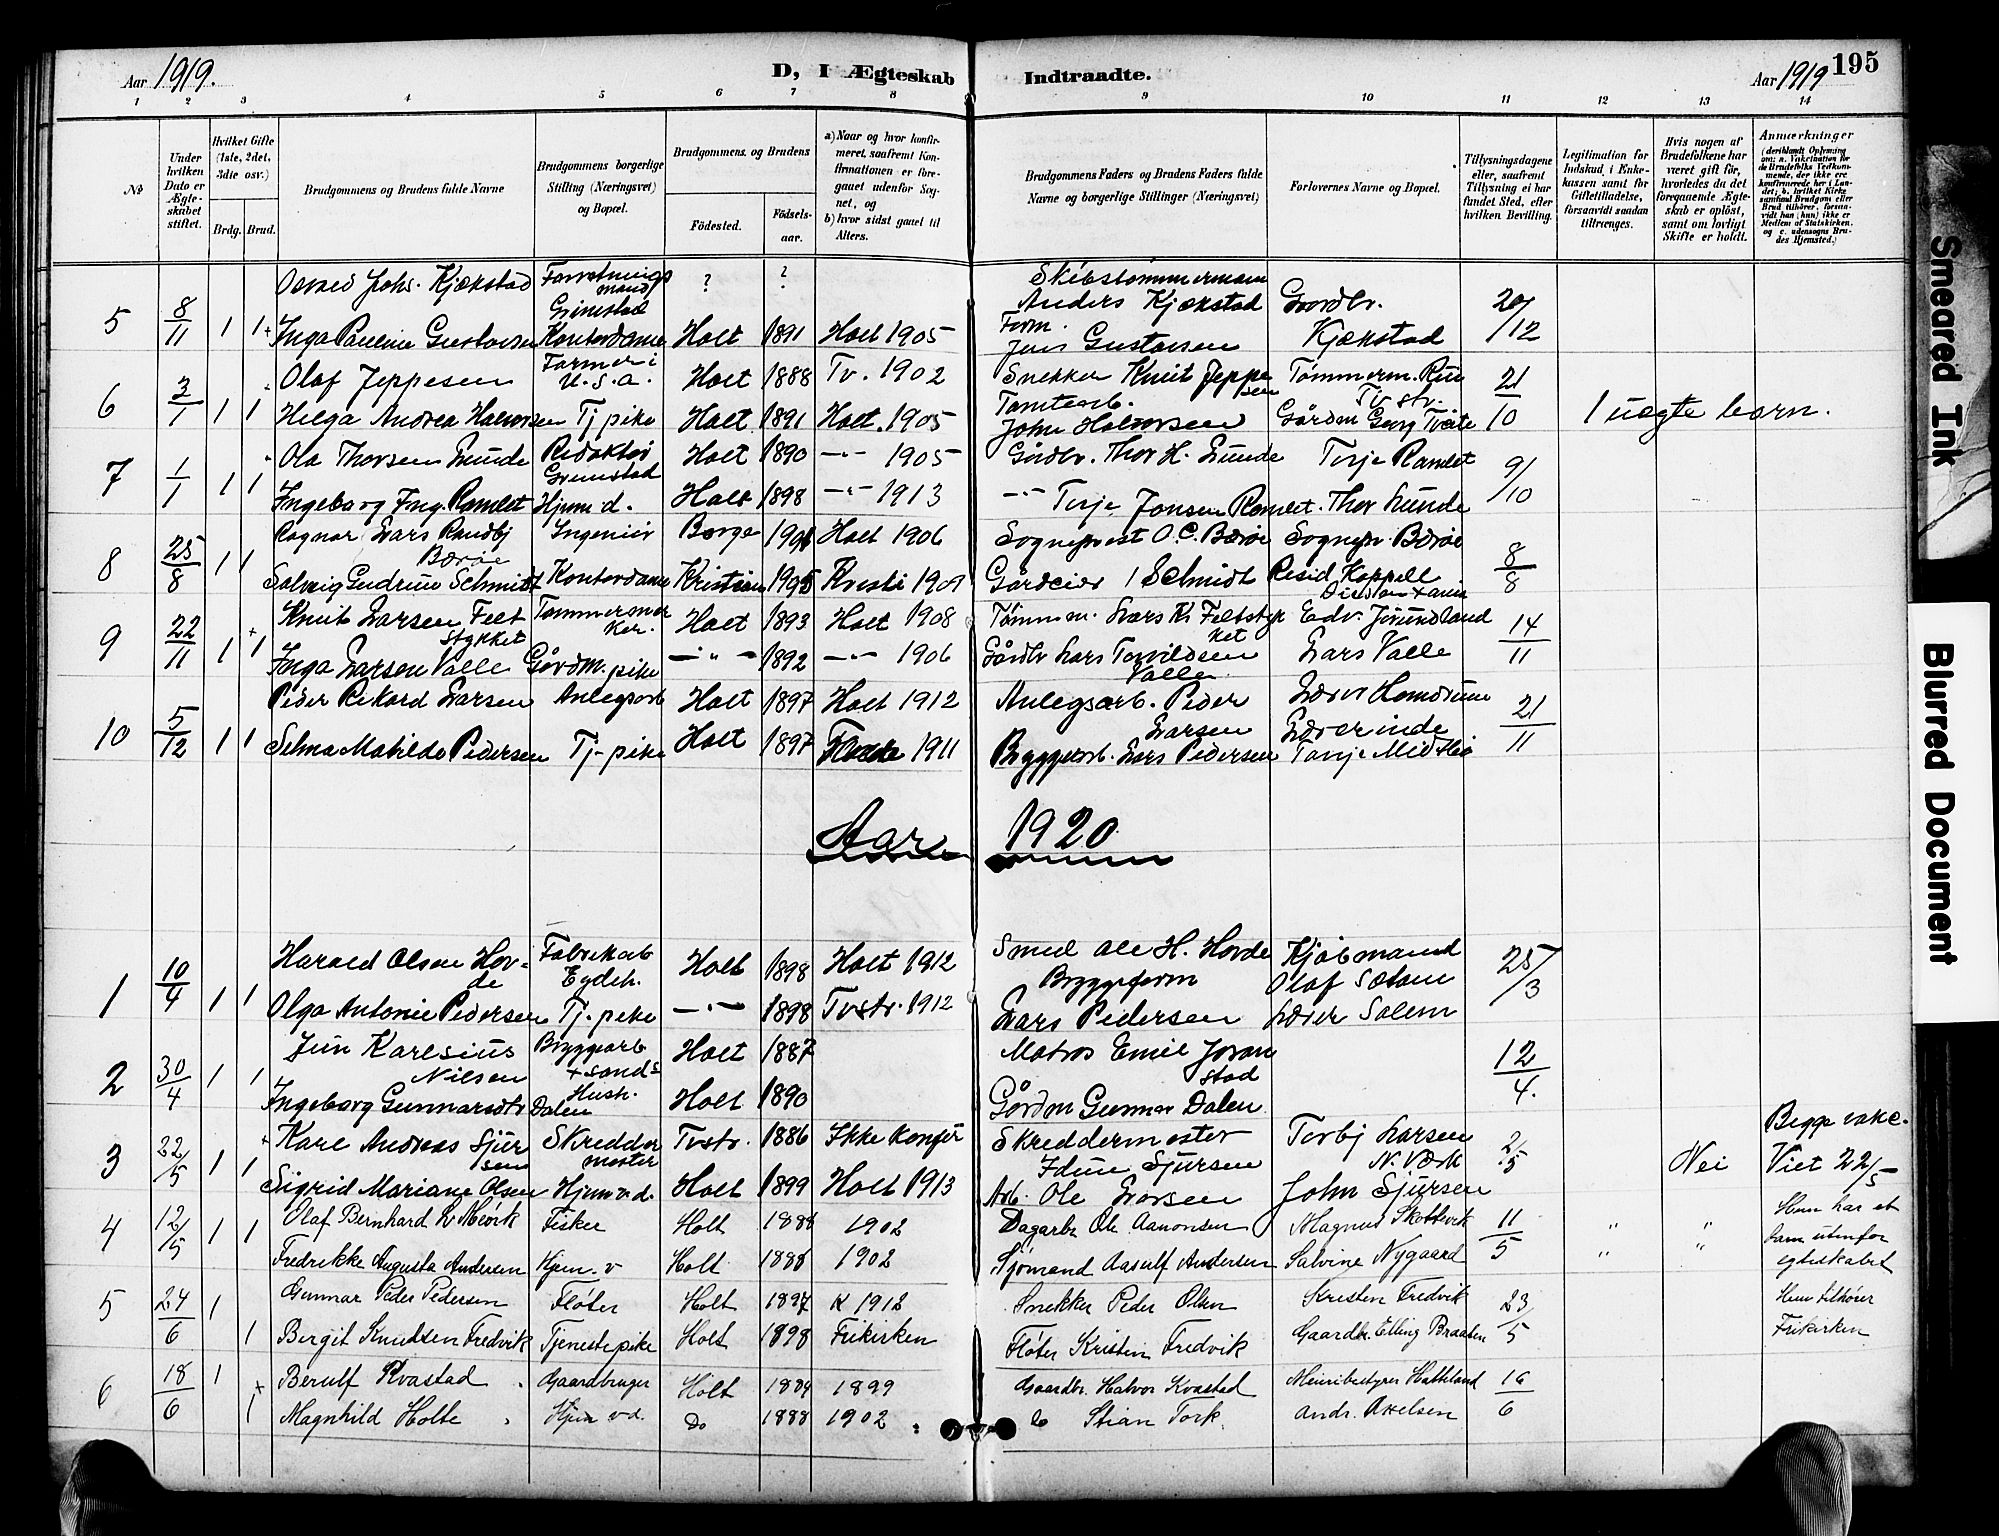 Aar 1919.
D, I Ægteskab Indtraadte.
Aar 1919
195
1 2 3 4 5 6 7 8 9 10 11 12 13 14
№
Under hvilken Dato er Ægteskabet stiftet.
Hvilket Gifte (1ste, 2det, 3die osv.)
Brdg. Brud.
Brudgommens og Brudens fulde Navne
Brudgommens borgerlige Stilling (Næringsvei) og Bopæl.
Brudgommens og Brudens
Fødested.
Fødsels-aar.
a) Naar og hvor konfirmeret, saafremt Konfirmationen er foregaaet udenfor Sognet, og
b) hvor sidst gaaet til Alters.
Brudgommens Faders og Brudens Faders fulde Navne og borgerlige Stillinger (Næringsvei)
Forlovernes Navne og Bopæl.
Tillysningsdagene eller, saafremt Tillysning ei har fundet Sted, efter hvilken Bevilling.
Legitimation for Indskud i Enkekassen samt for Giftetilladelse, forsaavidt saadan tiltrænges.
Hvis nogen af Brudefolkene har været gift før, hvorledes da det foregaaende Ægteskab er opløst, samt om lovligt Skifte er holdt.
Anmærkninger (deriblandt Oplysning om: a. Vakcination for de Brudefolks Vedkommende, der ikke ere konfirmerede her i Landet; b. hvilket Kirkesamfund Brudgom eller Brud tilhører, forsaavidt han (hun) ikke er Medlem af Statskirken, og c. udensogns Brudes Hjemsted.)
5 8/11 1 1 Johs. Kjækstad Forretningsmand Grimstad ? ? Skibstømmermann Anders Kjækstad Gvordbr. 20/12
Inga Pauline Gustavsen Kontordame Holt 1891 Holt 1905 Jens Gustavsen Kjækstad
6 3/1 1 1 Olaf Jeppesen Farmer i U.S.A. Holt 1888 Tv. 1902 Snekker Knut Jeppesen Tømmerm. 21/10
Helga Andrea Halvorsen Tj pike Holt 1891 Holt 1905 Tomtearb. John Halvorsen Gårdm Georg Tveite 1 uægte barn.
7 1/1 1 1 Ola Thorsen Lunde Redaktør Grimstad Holt 1890 -"- 1905 Gårdbr. Thor H. Lunde Terje Ramlet 9/10
Ingeborg Ing. Ramlet Hjem d. Holt 1898 -"- 1913 -"- Terje Jonsen Ramlet. Thor Lunde
8 25/8 1 1 Ragnar Lars Randbj Børøe Ingeniør Borge Holt 1906 Sogneprest O.C. Børøe Sognepr. Børøe 8/8
Solveig Gudrun Schmidt Kontordame Kristian 1905 Kristi Gårdeier Schmidt Resid. Kappell
9 22/11 1 1 Knut Larsen Feltstykket Tømmermester. Holt 1893 Holt 1908 Tømmm. Lars K. Feltstykket Edv. Jorundland 14/11
Inga Larsen Valle Gårdm. pike -"- 1892 -"- 1906 Gårdbr Lars Torvildsen Valle Lars Valle
10 5/12 1 1 Peder Rikard Larsen Anlegsarb Holt 1897 Holt 1912 Anlegsarb. Peder Larsen Lærer Homdrum 21/11
Selma Matilde Pedersen Tj-pike Holt 1897 1911 Byggearb. Lars Pedersen Lærerinde
Aar 1920
1 10/4 1 1 Harald Olsen Hovde Fabrikarb Eydeh. Holt 1898 Holt 1912 Smed Ole H. Hovde Kjøbmand Olaf Sætam 25/3
Olga Antonie Pedersen Tj. pike -"- 1898 Tvstr. 1912 Byggeform Lars Pedersen Lærer Salem
2 30/4 1 1 Karlsius Nilsen Byggearb Holt 1887 Matros Emil Joranstad 12/4.
Ingeborg Gunnarsdtr Dalen Hush. Holt 1890 Gårdm Gunnar Dalen
3 22/5 1 1 Karl Andreas Sjursen Skreddermester Tvstr. 1886 Ikke konfir Skreddermester Idun Sjursen Torbj Larsen N. Værk 2/5 Nei Begge vakc. Viet 22/5
Sigrid Mariane Olsen Hjemv.d. Holt 1899 Holt 1913 Arb. Ole Larsen John Sjursen
4 12/5 1 1 Olaf Bernhard Fisker Holt 1902 Dagarbr Ole Aanonsen Magnus Skottevik 11/5 " " Hun har et barn utenfor egteskabet
Fredrikke Augusta Andersen Hjem. v Holt 1888 1902 Sjømand Aasulf Andersen Salvine Nygaard " "
5 24/6 1 1 Gunnar Peder Pedersen Fløter Holt 1897 K 1912 Snekker Peder Olsen Kristen Fredvik 23/5 Hun tilhører Frikirken
Bergit Knudsen Fredvik Tjenestepike Holt 1898 Frikirken Fløter Kristen Fredvik Gaardbr. Elling Braaten
6 18/6 1 1 Berulf Kvastad Gaardbruger Holt 1884 1899 Gaardbr. Halvor Kvastad Meieribestyrer Hatteland 16/6
Magnhild Holte Hjem v.d. Do 1888 1902 Do Stian Tork Andr. Axelsen
Smeared Ink
Blurred Document